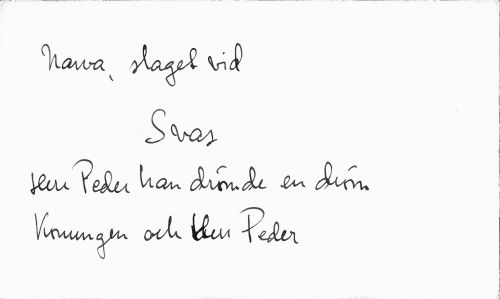 Narva, slaget vid
Svar
Herr Peder han drömde en dröm
Konungen och Herr Peder